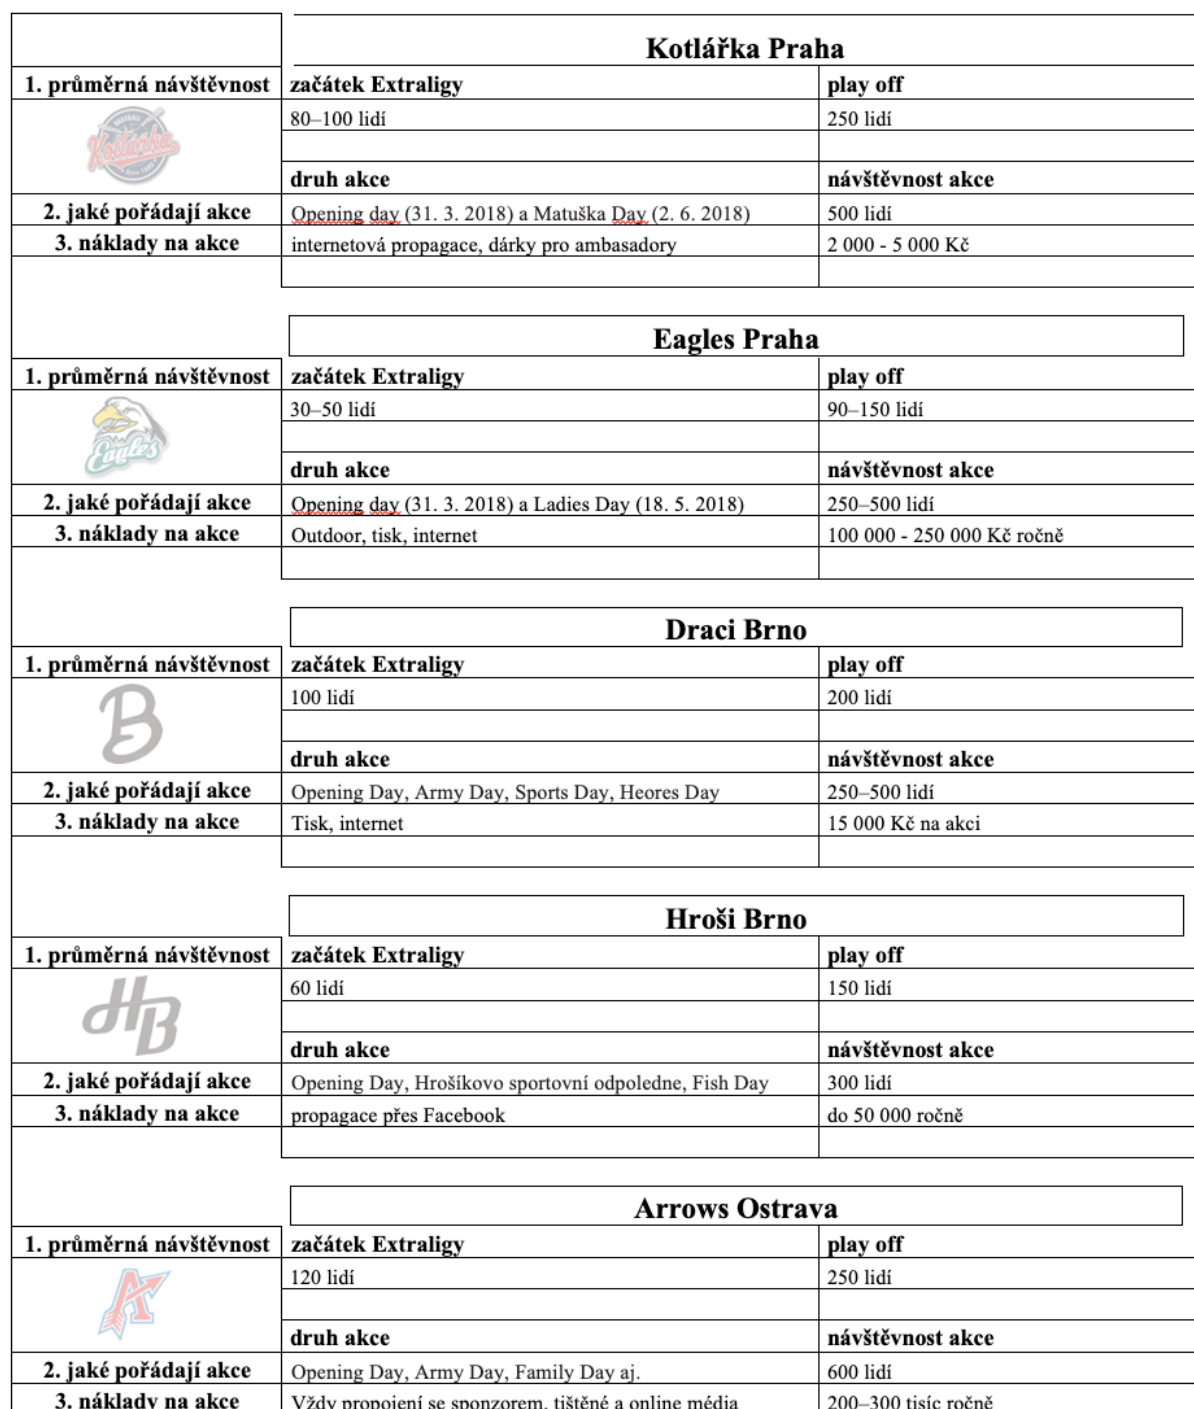 Kotlářka Praha
1. průměrná návštěvnost začátek Extraligy play off
BASEBALL
Kotlářka
80–100 lidí 250 lidí
druh akce návštěvnost akce
2. jaké pořádají akce Opening day (31. 3. 2018) a Matuška Day (2. 6. 2018) 500 lidí
3. náklady na akce internetová propagace, dárky pro ambasadory 2 000 - 5 000 Kč
Eagles Praha
1. průměrná návštěvnost začátek Extraligy play off
Eagles
30–50 lidí 90–150 lidí
druh akce návštěvnost akce
2. jaké pořádají akce Opening day (31. 3. 2018) a Ladies Day (18. 5. 2018) 250–500 lidí
3. náklady na akce Outdoor, tisk, internet 100 000 - 250 000 Kč ročně
Draci Brno
1. průměrná návštěvnost začátek Extraligy play off
B
100 lidí 200 lidí
druh akce návštěvnost akce
2. jaké pořádají akce Opening Day, Army Day, Sports Day, Heores Day 250–500 lidí
3. náklady na akce Tisk, internet 15 000 Kč na akci
Hroši Brno
1. průměrná návštěvnost začátek Extraligy play off
HB
60 lidí 150 lidí
druh akce návštěvnost akce
2. jaké pořádají akce Opening Day, Hrošíkovo sportovní odpoledne, Fish Day 300 lidí
3. náklady na akce propagace přes Facebook do 50 000 ročně
Arrows Ostrava
1. průměrná návštěvnost začátek Extraligy play off
A
120 lidí 250 lidí
druh akce návštěvnost akce
2. jaké pořádají akce Opening Day, Army Day, Family Day aj. 600 lidí
3. náklady na akce Vždy propojení se sponzorem, tištěné a online média 200–300 tisíc ročně